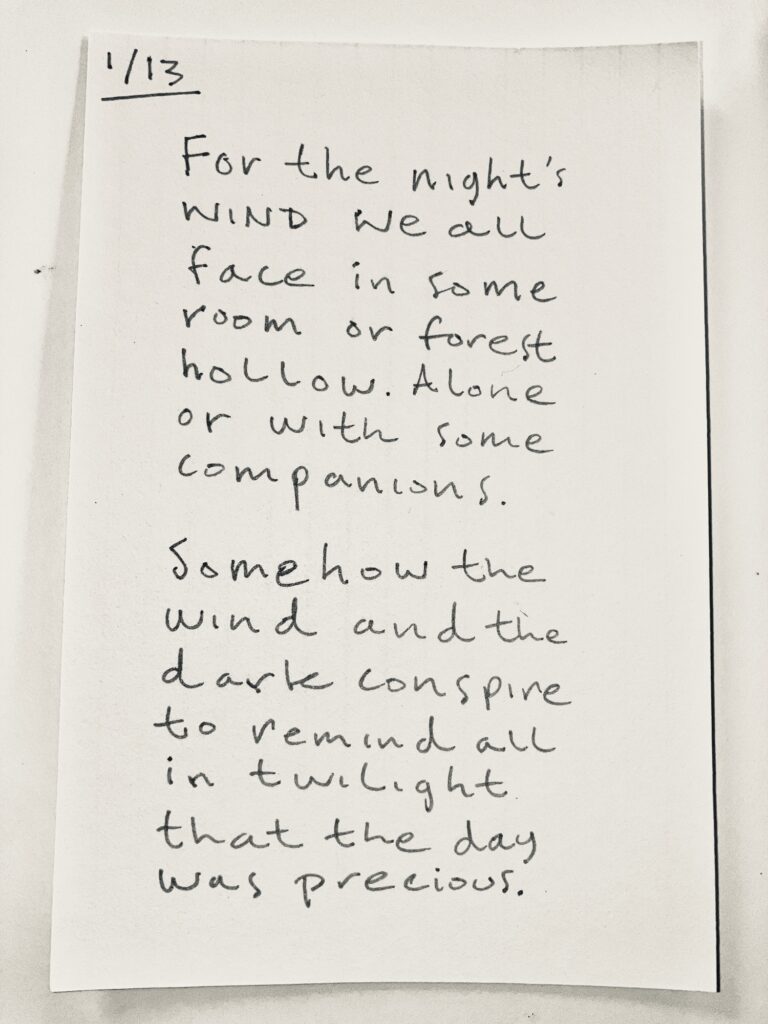 1/13
For the night's
WIND we all
face in some
room or forest
hollow. Alone
or with some
companions.
Somehow the
wind and the
dark conspire
to remind all
in twilight
that the day
was precious.